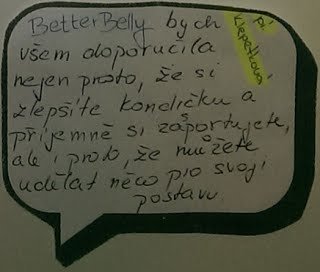 BetterBelly bych
všem doporučila
nejen proto, že si
zlepšíte kondičku a
příjemně si zašportujete,
ale i proto, že můžete
udělat něco pro svoji
postavu